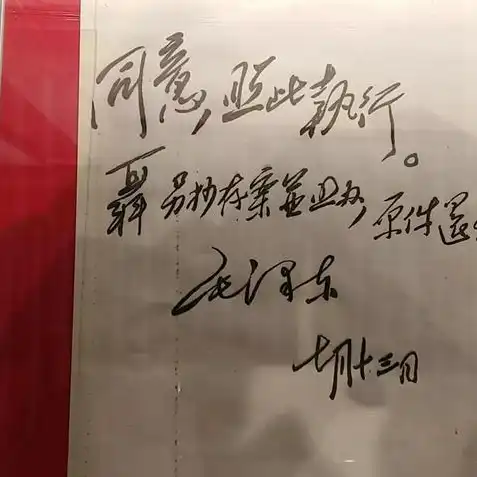 同意，照此執行。
聶 另抄存案並照办，原件還
毛泽东
七月十三日